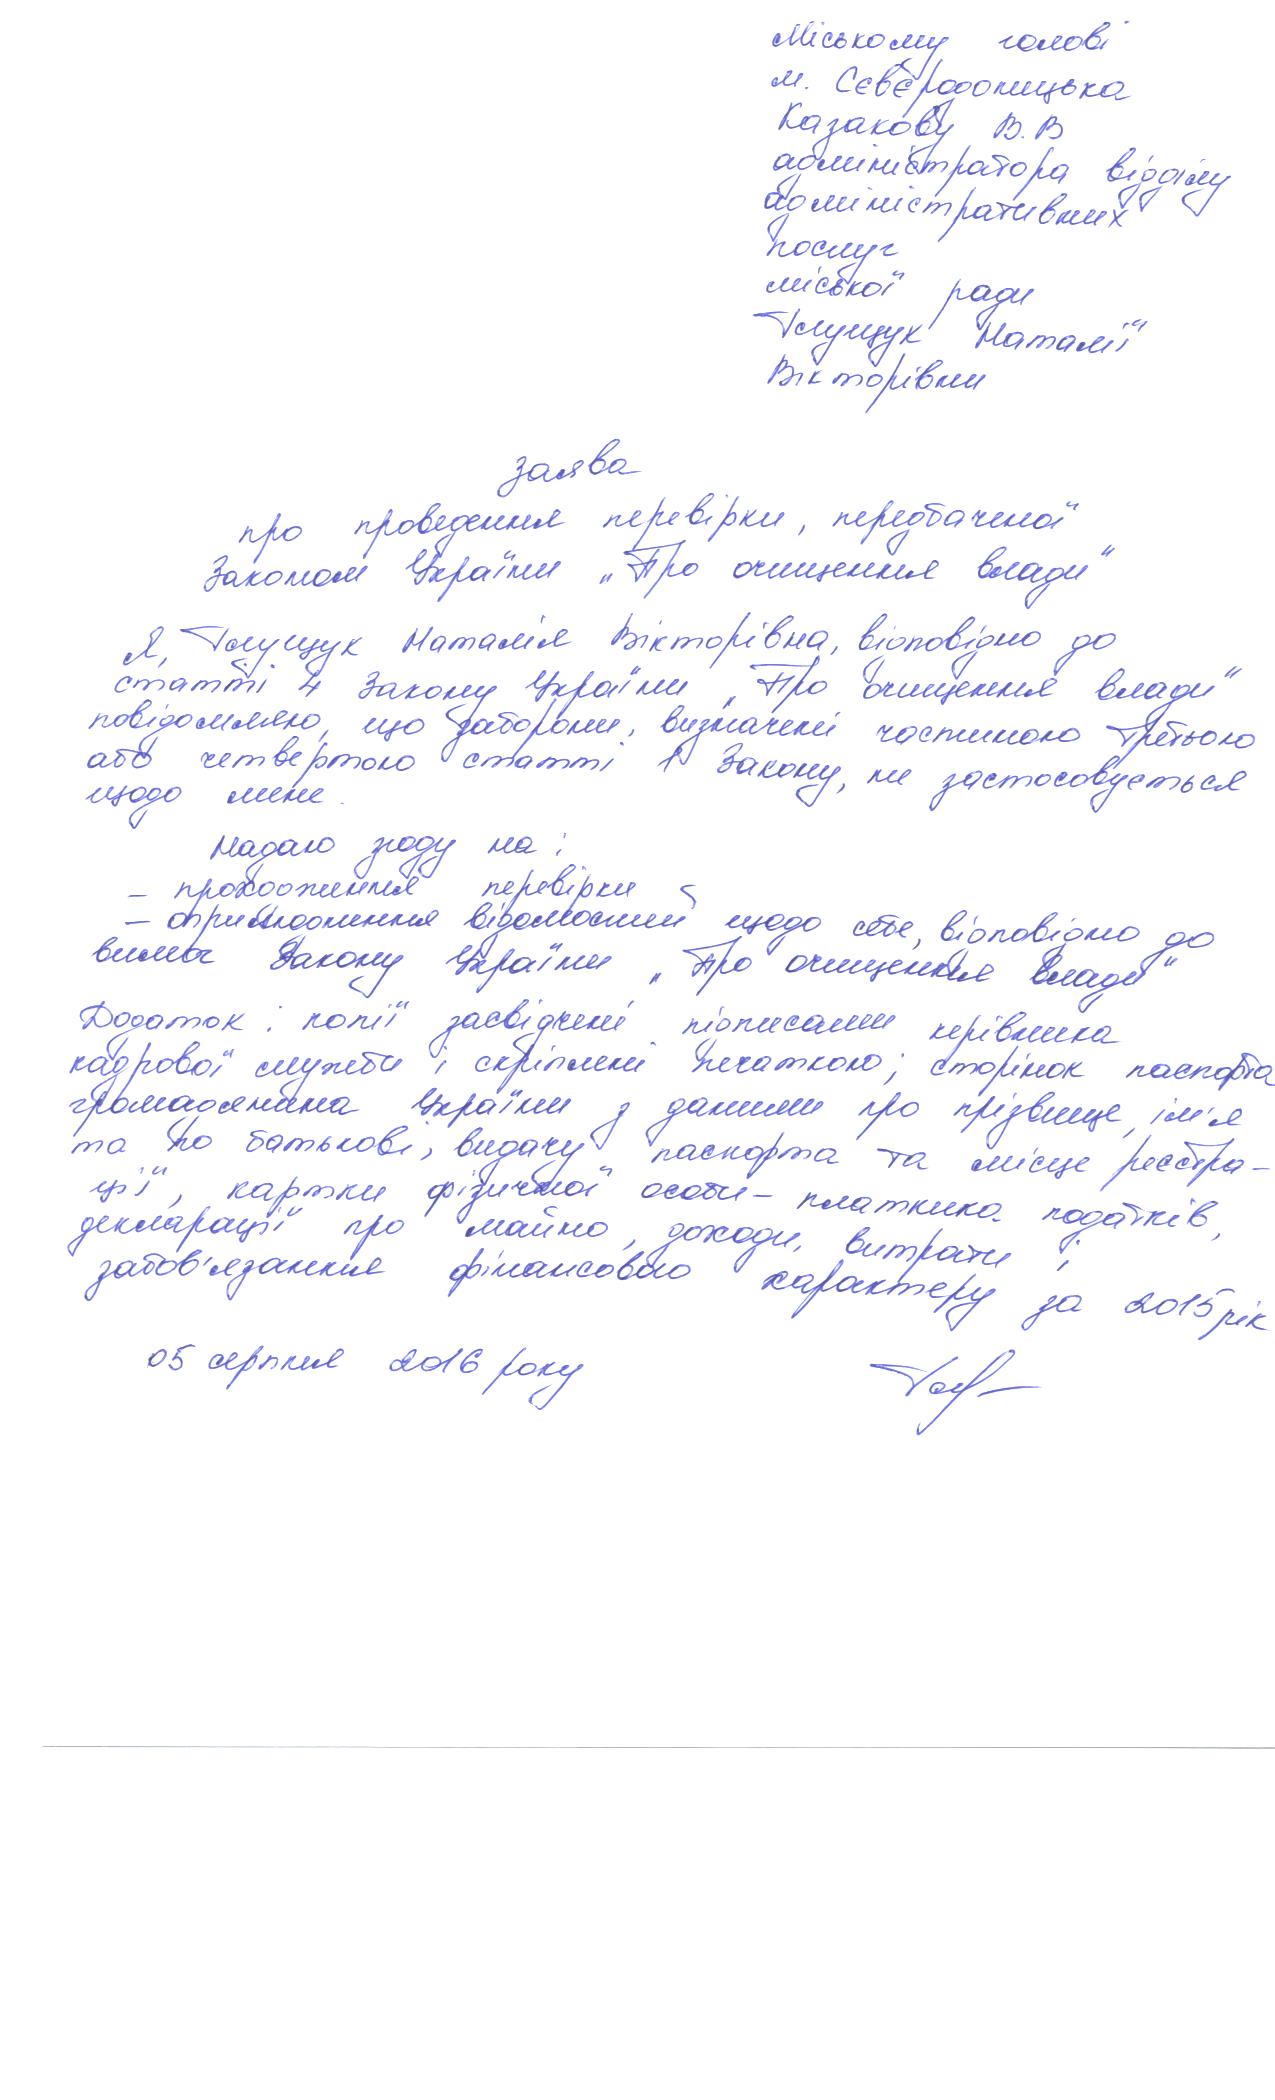 Міському голові
м. Сєвєродонецька
Казакову В.В
адміністратора відділу
адміністративних
послуг
міської ради
Глущук Наталії
Вікторівни
заява
про проведення перевірки, передбаченої
Законом України „Про очищення влади"
Я, Глущук Наталія Вікторівна, відповідно до
статті 4 Закону України „Про очищення влади"
повідомляю, що заборони, визначені частиною третьою
або четвертою статті 1 Закону, не застосовується
щодо мене.
Надаю згоду на:
- проходження перевірки
- оприлюднення відомостей щодо себе, відповідно до
вимог Закону України „Про очищення влади"
Додаток: копії засвідчені підписами керівника
кадрової служби і скріплені печаткою; сторінок паспорта
громадянина України з даними про прізвище, ім'я
та по батькові, видачу паспорта та місце реєстра-
ції, картки фізичної особи - платника податків,
декларації про майно, доходи, витрати і
забов'язання фінансового характеру за 2015 рік
05 серпня 2016 року